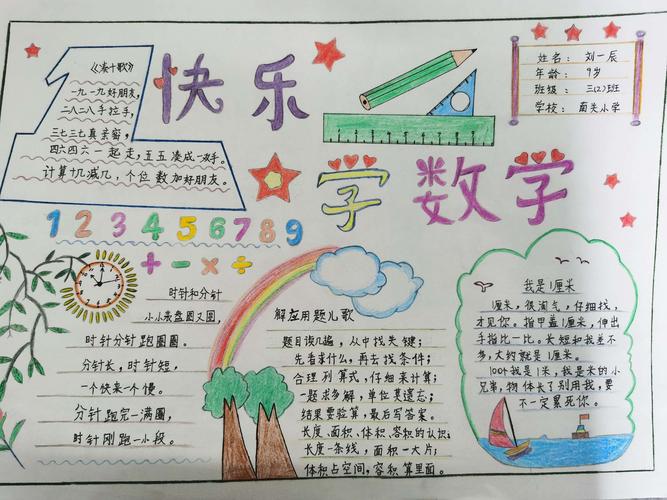 《凑十歌》
一九一九好朋友,
二八二八手拉手,
三七三七真亲密,
四六四六一起走,五五凑成一双手。
计算十几减几,个位数加好朋友。
快乐
学数学
姓名: 刘一辰
年龄: 9岁
班级: 三(2)班
学校: 南关小学
1 2 3 4 5 6 7 8 9
+ - × ÷
时针和分针
小小表盘圆又圆,
时针分针跑圈圈。
分针长,时针短,
一个快来一个慢。
分针跑完一满圈,
时针刚跑一小段。
解应用题儿歌
题目读几遍,从中找关键;
先看求什么,再去找条件;
合理列算式,仔细来计算;
一题求多解,单位莫遗忘;
结果要验算,最后写答案。
长度、面积、体积、容积的认识;
长度一条线,面积一大片;
体积占空间,容积算里面。
我是1厘米
1厘米,很淘气,仔细找,
才见你。指甲盖1厘米,伸出
手指比一比。长短和我差不
多,大约就是1厘米。
100叶我是1米,我是米的小
兄弟,物体长了别用我,要
不一定累死你。